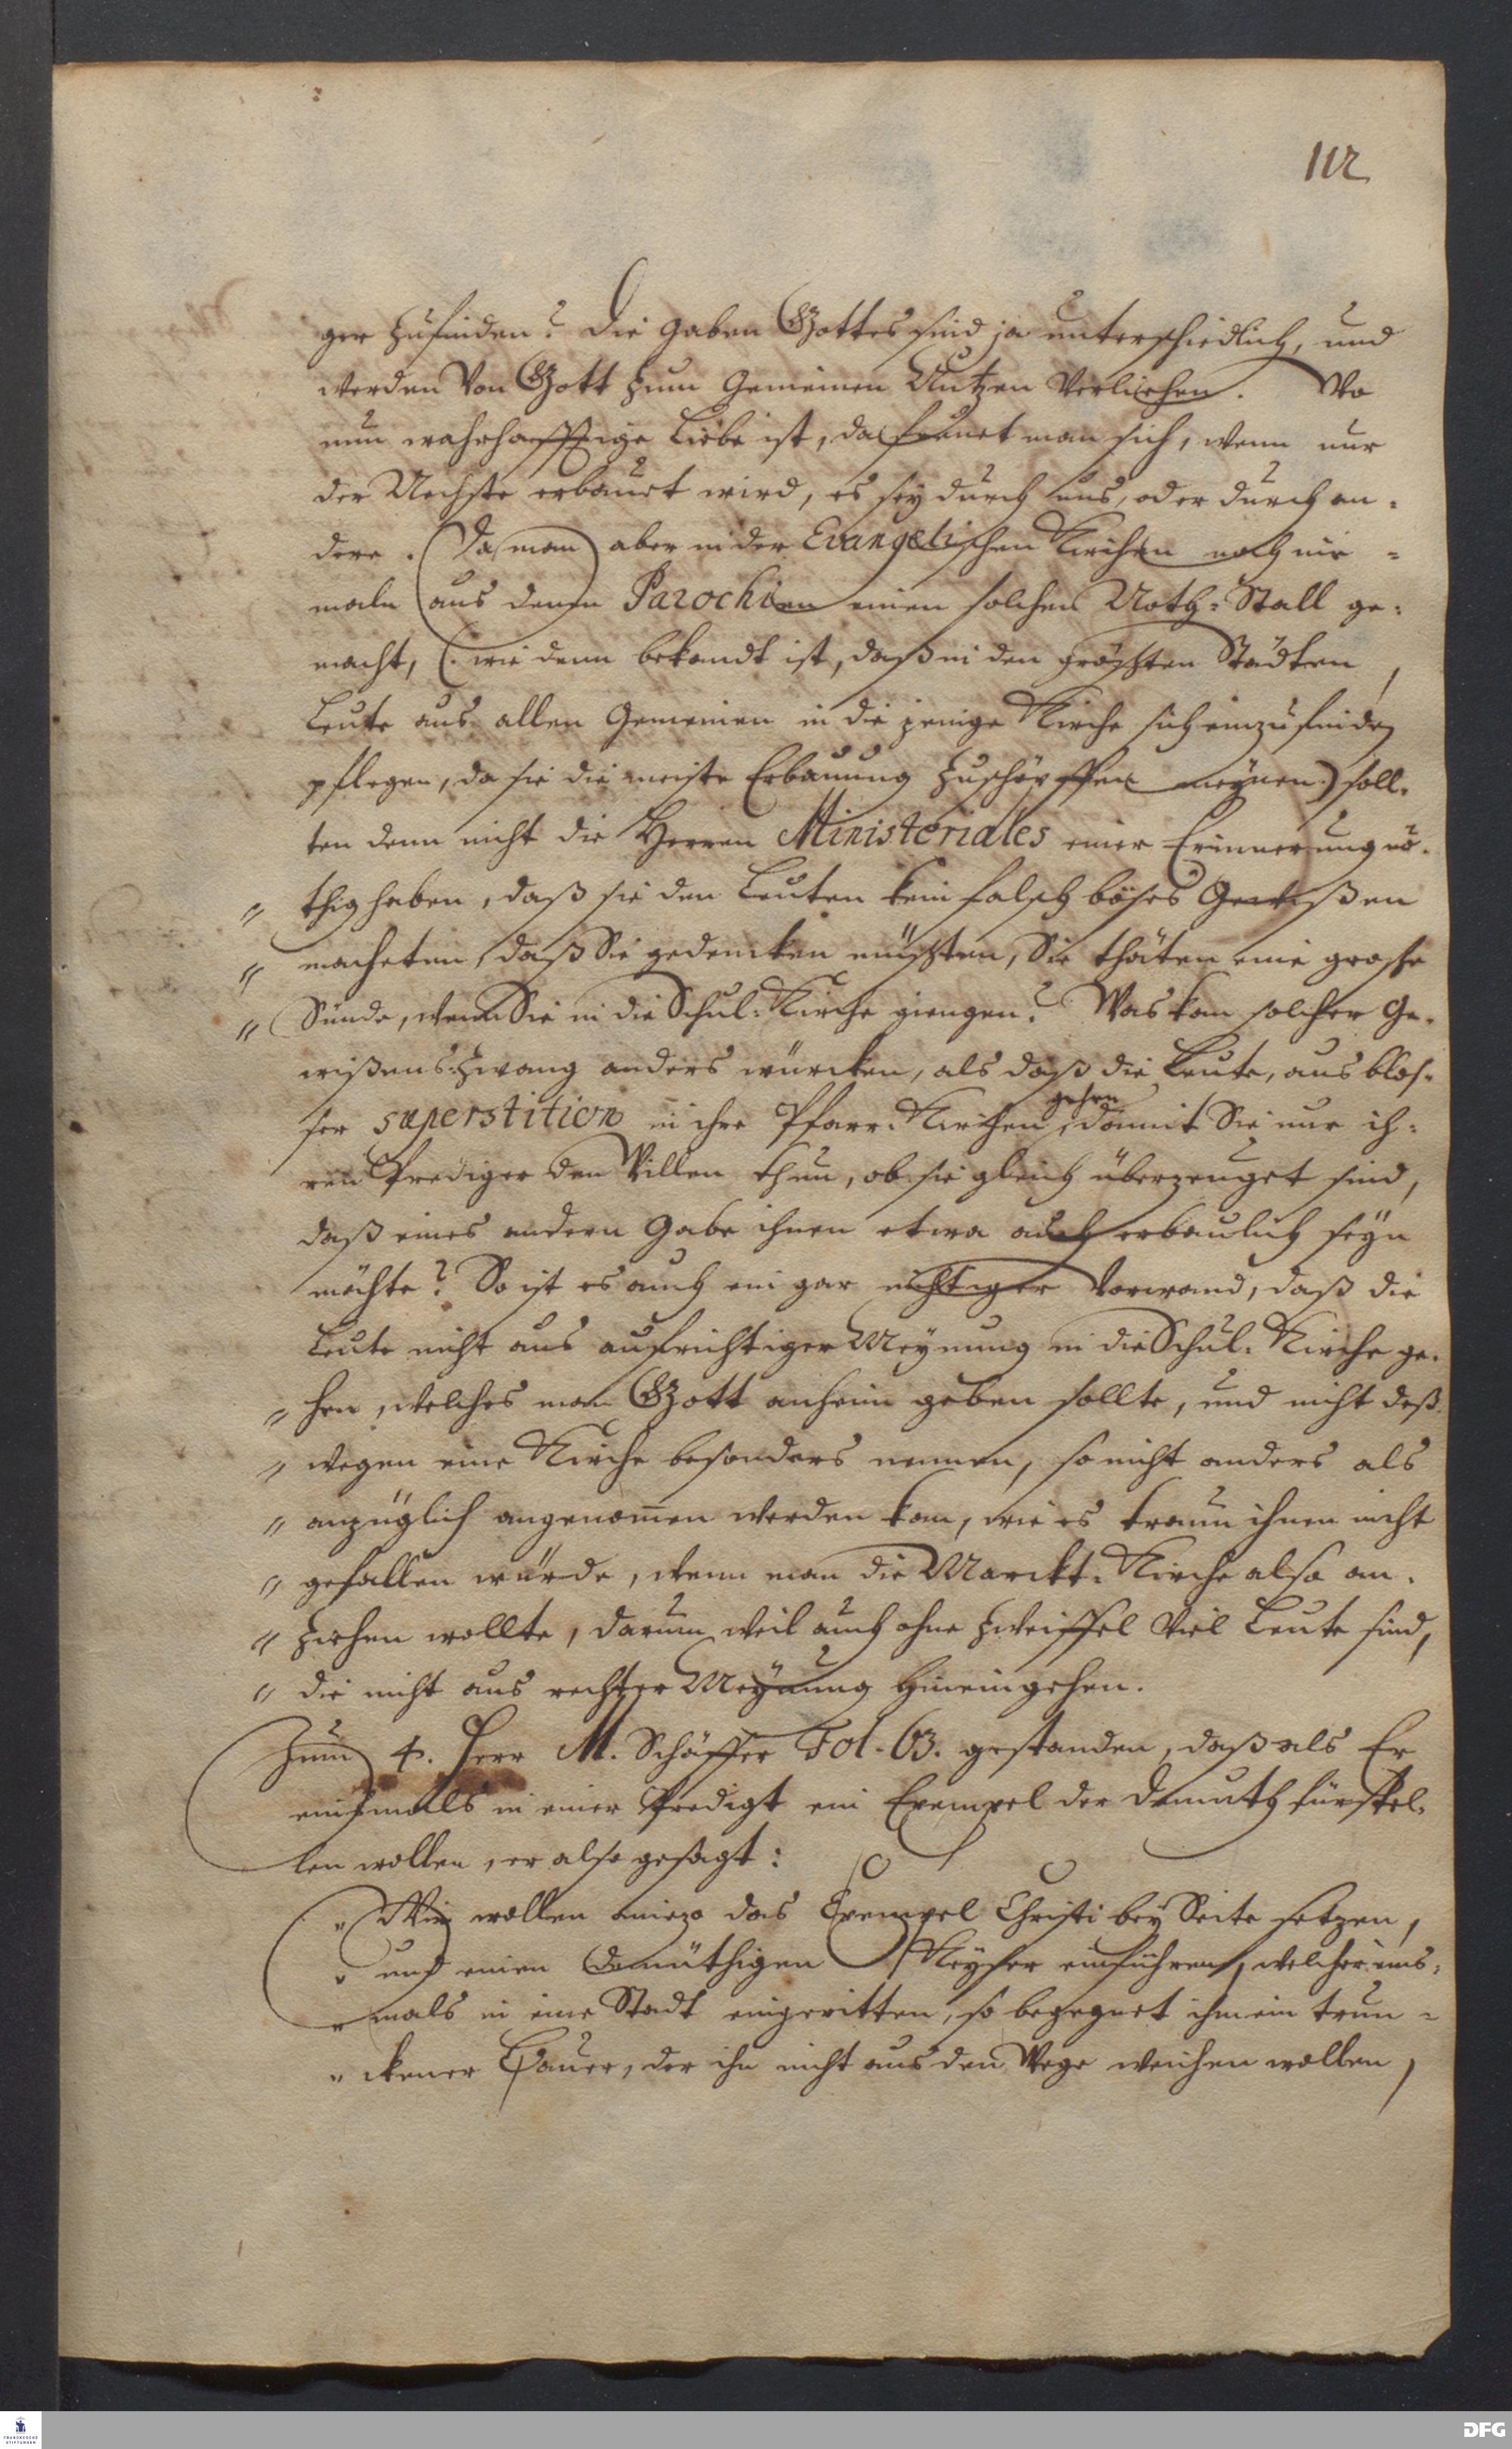 112
ger zufinden? Die Gaben Gottes sind ja unterschiedlich, und
werden von Gott zum Gemeinen Nutzen verliehen. Wo
nun wahrhafftige Liebe ist, da freuet man sich, wenn nur
der Nechste erbauet wird, es sey durch uns, oder durch an-
dere. Da man aber in der Evangelischen Kirchen noch nie-
maln aus denen Parochien einen solchen Noth-Stall ge-
macht, (: wie denn bekandt ist, daß in den größten Städten,
Leute aus allen Gemeinen in die jenige Kirche sich einzufinden
pflegen, da sie die meiste Erbauung zuschöpffen meynen:) soll-
ten denn nicht die Herren Ministeriales einer Erinnerung nö-
" thig haben, daß sie den Leuten kein falsch böses Gewißen
" macheten, daß Sie gedencken müsten, Sie thäten eine grosse
" Sünde, wenn Sie in die Schul-Kirche giengen? Was kan solcher Ge-
wißens-Zwang anders würcken, als daß die Leute, aus blos-
ser superstition in ihre Pfarr-Kirchen gehen, damit Sie nur ih-
ren Prediger den Willen thun, ob sie gleich überzeuget sind,
daß eines andern Gabe ihnen etwa auch erbaulich seyn
möchte? So ist es auch ein gar nichtiger Vorwand, daß die
Leute nicht aus aufrichtiger Meynung in die Schul-Kirche ge-
" hen, welches man Gott anheim geben sollte, und nicht deß-
" wegen eine Kirche besonders nennen, so nicht anders als
" anzüglich angenommen werden kan, wie es traun ihnen nicht
" gefallen würde, wenn man die Marckt-Kirche also an-
" ziehen wollte, darum weil auch ohne Zweiffel viel Leute sind,
" die nicht aus rechter Meynung hineingehen.
Zum 4. Herr M. Schäffer Fol. 63. gestanden, daß als Er
einsmals in einer Predigt ein Exempel der Demuth fürstel-
len wollen, er also gesagt:
" Wir wollen aniezo das Exempel Christi bey Seite setzen,
" und einen Demüthigen Keyser einführen, welcher eins-
" mals in eine Stadt eingeritten, so begegnet ihm ein trun-
" ckener Bauer, der ihn nicht aus den Wege weichen wollen,
FRANCKESCHE STIFTUNGEN
DFG